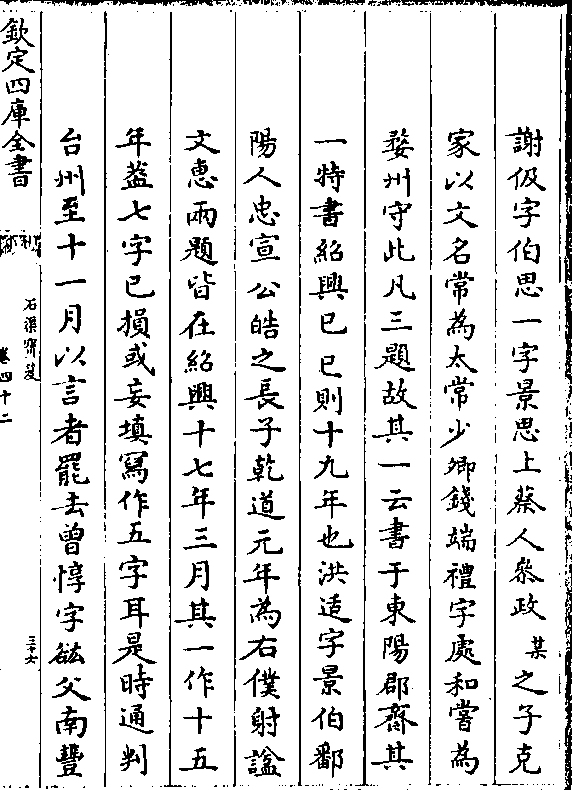 謝伋字伯思一字景思上蔡人叅政某之子克
家以文名常為太常少卿錢端禮字處和嘗為
婺州守此凡三題故其一云書于東陽郡齋其
一特書紹興已巳則十九年也洪适字景伯鄱
陽人忠宣公皓之長子乾道元年為右僕射諡
文惠兩題皆在紹興十七年三月其一作十五
年葢七字已損或妄填寫作五字耳是時通判
台州至十一月以言者罷去曾惇字紘父南豐
欽定四庫全書
卷四十二
三十六